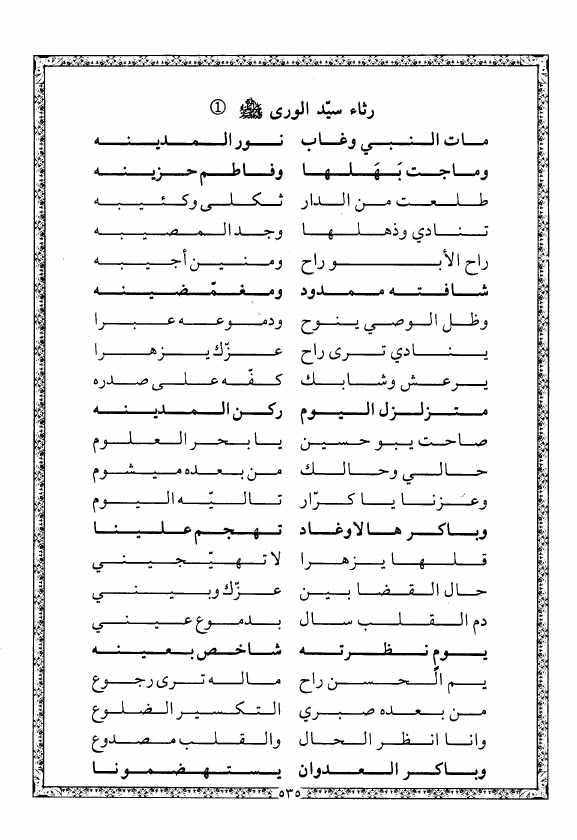 رثاء سيّد الورى ﷺ ①
مات النبي وغاب نور المدينه
وماجت بَهَلها وفاطم حزينه
طلعت من الدار ثكلى وكئيبه
تنادي وذهلها وجد المصيبه
راح الأبو راح ومنين أجيبه
شافته ممدود ومغمّضينه
وظل الوصي ينوح ودموعه عبرا
ينادي ترى راح عزّك يزهرا
يرعش وشابك كفّه على صدره
متزلزل اليوم ركن المدينه
صاحت يبو حسين يا بحر العلوم
حالي وحالك من بعده ميشوم
وعزنا يا كرّار تاليّه اليوم
وباكر هالاوغاد تهجم علينا
قلها يزهرا لا تهيّجيني
حال القضا بين عزّك وبيني
دم القلب سال بدموع عيني
يوم نظرته شاخص بعينه
يم الحسن راح ماله ترى رجوع
من بعده صبري التكسير الضلوع
وانا انظر الحال والقلب مصدوع
وباكر العدوان يستهضمونا
٥٣٥